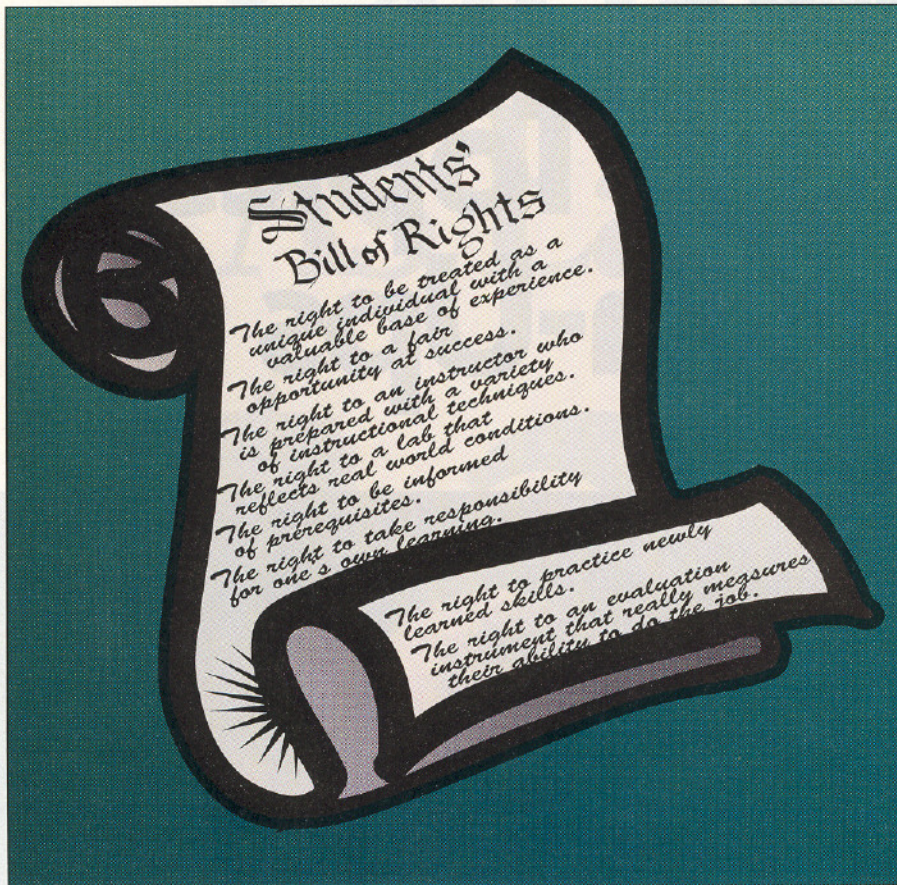 Students'
Bill of Rights
The right to be treated as a
unique individual with a
valuable base of experience.
The right to a fair
opportunity at success.
The right to an instructor who
is prepared with a variety
of instructional techniques.
The right to a lab that
reflects real world conditions.
The right to be informed
of prerequisites.
The right to take responsibility
for one's own learning.
The right to practice newly
learned skills.
The right to an evaluation
instrument that really measures
their ability to do the job.